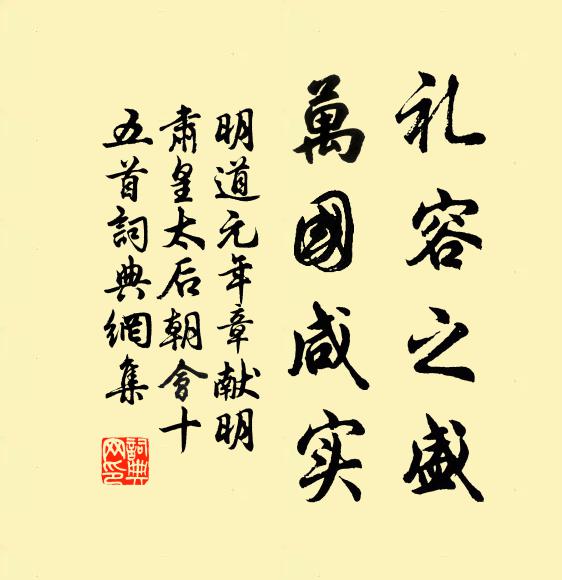 礼容之盛
萬國咸实
明道元年章献明
肅皇太后朝會十
五首詞典網集
詞典网印